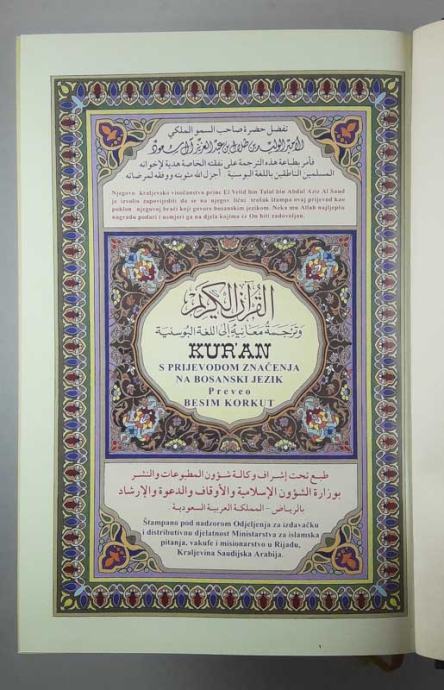 تفضل حضرة صاحب السمو الملكي
الأمير الوليد بن طلال بن عبد العزيز آل سعود
فأمر بطباعة هذه الترجمة على نفقته الخاصة هدية لإخوانه
المسلمين الناطقين باللغة البوسنية أجزل الله مثوبته ووفقه لمرضاته
Njegovo kraljevsko visočanstvo princ El Velid bin Talal bin Abdul Aziz Al Saud
je izvolio zapovijediti da se na njegov lični trošak štampa ovaj prijevod kao
poklon njegovoj braći koji govore bosanskim jezikom. Neka mu Allah najljepšu
nagradu podari i usmjeri ga na djela kojima će On biti zadovoljan.
القرآن الكريم
وترجمة معانيه إلى اللغة البوسنية
KUR'AN
S PRIJEVODOM ZNAČENJA
NA BOSANSKI JEZIK
Preveo
BESIM KORKUT
طبع تحت إشراف وكالة شؤون المطبوعات والنشر
بوزارة الشؤون الإسلامية والأوقاف والدعوة والإرشاد
بالرياض - المملكة العربية السعودية
Štampano pod nadzorom Odjeljenja za izdavačku
i distributivnu djelatnost Ministarstva za islamska
pitanja, vakufe i misionarstvo u Rijadu,
Kraljevina Saudijska Arabija.
١